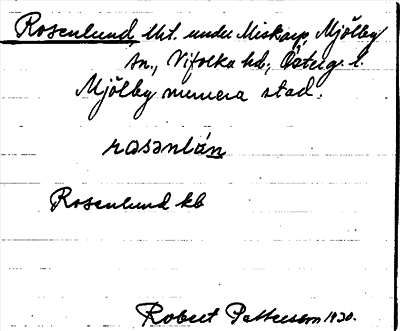 Rosenlund, Ust. under Miskarp, Mjölby
sn, Vifolka hd, Östg. l.
Mjölby numera stad.
rosənlún
Rosenlund kb
Robert Pettersson 1930.